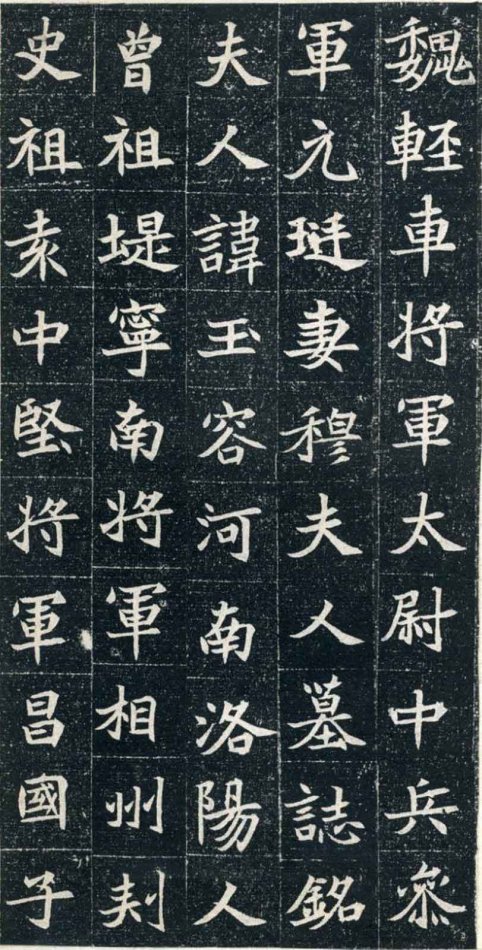 魏輕車將軍太尉中兵叅
軍元珽妻穆夫人墓誌銘
夫人諱玉容河南洛陽人
曾祖堤寧南將軍相州刾
史祖袁中堅將軍昌國子